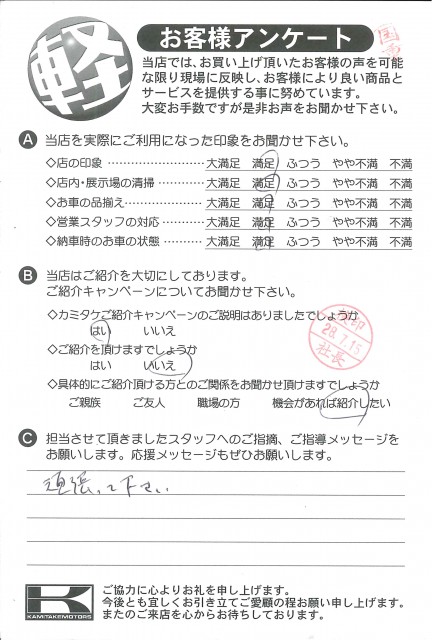 軽
お客様アンケート
当店では、お買い上げ頂いたお客様の声を可能
な限り現場に反映し、お客様により良い商品と
サービスを提供する事に努めています。
大変お手数ですが是非お声をお聞かせ下さい。
A 当店を実際にご利用になった印象をお聞かせ下さい。
◇店の印象 ……………………… 大満足 満足 ふつう やや不満 不満
◇店内・展示場の清掃 ………… 大満足 満足 ふつう やや不満 不満
◇お車の品揃え ………………… 大満足 満足 ふつう やや不満 不満
◇営業スタッフの対応 ………… 大満足 満足 ふつう やや不満 不満
◇納車時のお車の状態 ………… 大満足 満足 ふつう やや不満 不満
B 当店はご紹介を大切にしております。
ご紹介キャンペーンについてお聞かせ下さい。
◇カミタケご紹介キャンペーンのご説明はありましたでしょうか
はい いいえ
28.7.15
社長
◇ご紹介を頂けますでしょうか
はい いいえ
◇具体的にご紹介頂ける方とのご関係をお聞かせ頂けますでしょうか
ご親族 ご友人 職場の方 機会があれば紹介したい
C 担当させて頂きましたスタッフへのご指摘、ご指導メッセージを
お願いします。応援メッセージもぜひお願いします。
頑張って下さい
K
KAMITAKEMOTORS
ご協力に心よりお礼を申し上げます。
今後とも宜しくお引き立てご愛顧の程お願い申し上げます。
またのご来店を心からお待ちしております。